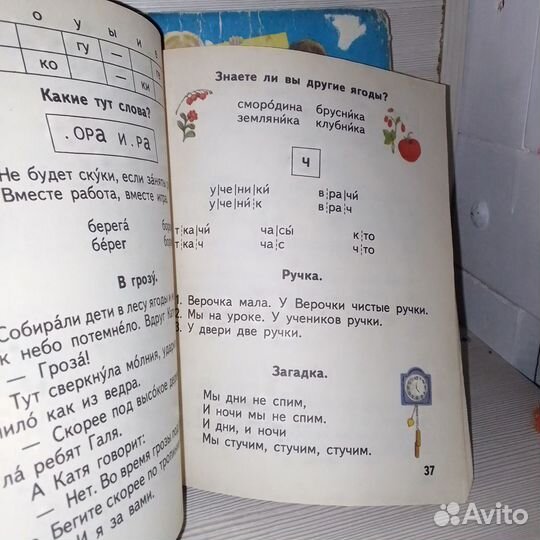 о у ы и е
гу — ге
ко — ки
Какие тут слова?
.ОРа и .Ра
Не будет скуки, если заняты
Вместе работа, вместе игра
берега́
бе́рег
В грозу́.
Собира́ли дети в лесу ягоды и
к небо потемне́ло. Вдруг
— Гроза́!
Тут сверкну́ла мо́лния,
как из ведра.
— Скорее под высо́кое
ребят Галя.
А Катя говорит:
— Нет. Во время грозы под
Бегите скорее по
И я за вами.
Знаете ли вы другие ягоды?
сморо́дина брусни́ка
земляни́ка клубни́ка
ч
у|че|ни|ки́ в|ра|чи́
у|че|ни́|к в|ра|ч
т|ка|чи́ ча|сы́ к|то
т|ка|ч ча|с ч|то
Ручка.
1. Верочка мала. У Верочки чистые ручки.
2. Мы на уроке. У учеников ручки.
3. У двери две ручки.
Загадка.
Мы дни не спим,
И ночи мы не спим.
И дни, и ночи
Мы стучим, стучим, стучим.
37
Avito